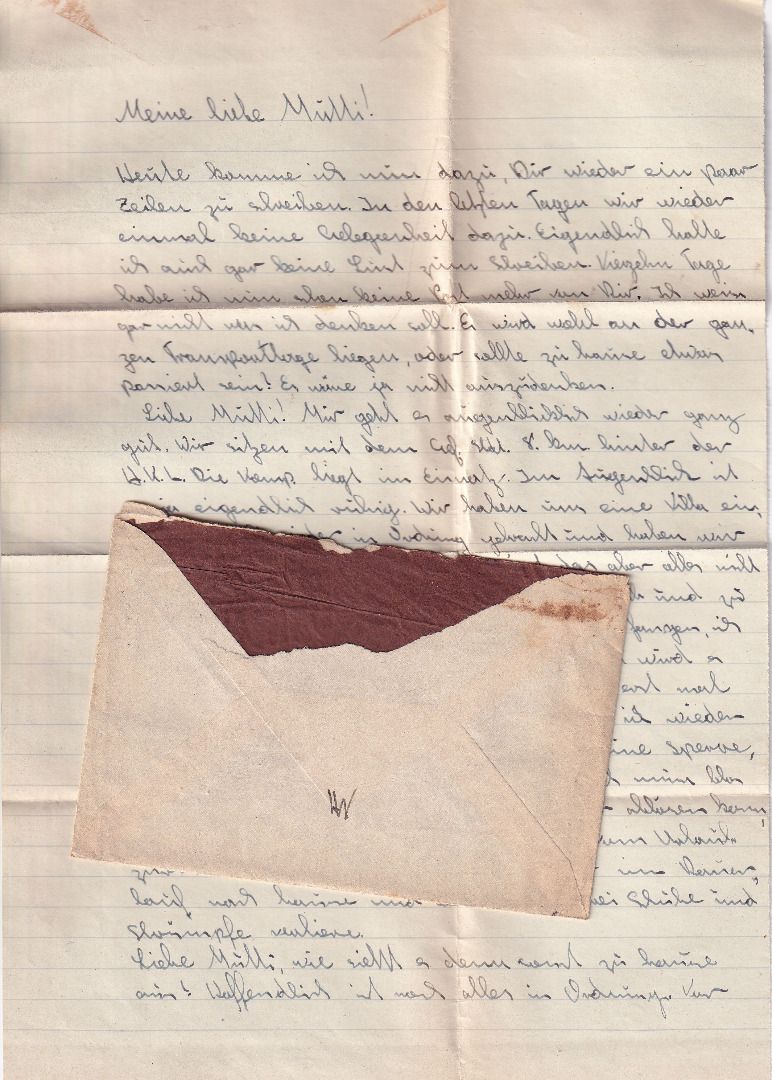 Meine liebe Mutti!
Heute komme ich nun dazu, Dir wieder ein paar
Zeilen zu schreiben. In den letzten Tagen wir wieder
einmal keine Gelegenheit dazu. Eigendlich hatte
ich auch gar keine Lust zum Schreiben. Vierzehn Tage
habe ich nun schon keine Post mehr von Dir. Ich weis
gar nicht was ich denken soll. Es wird wohl an der gan-
zen Transportlage liegen, oder sollte zu hause etwas
passiert sein? Es wäre ja nicht auszudenken.
Liebe Mutti! Mir geht es augenblicklich wieder ganz
gut. Wir sitzen mit dem Gef. Std. 8. km. hinter der
H.K.L. Die Komp. liegt im Einsatz. Im Augenblick ist
eigendlich ruhig. Wir haben uns eine Villa ein,
in Ordnung gebracht und haben wir
das aber alles nicht
und zu
fangen, ich
wird es
erst mal
ich wieder
eine Sperre,
nun blos
ablösen kann,
zum Urlaub
zur im Dauer,
lauf nach hause und bei Schuhe und
Strümpfe verliere.
Liebe Mutti, wie sieht es denn sonst zu hause
aus? Hoffendlich ist noch alles in Ordnung. Vor